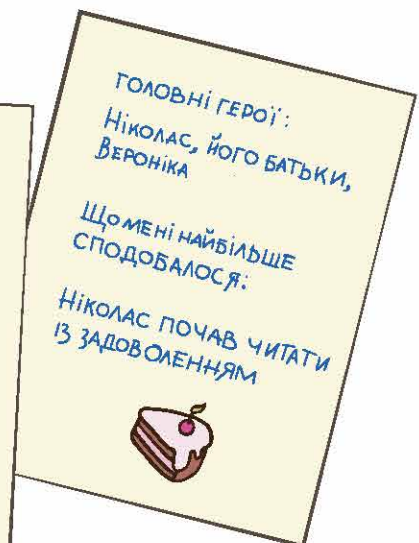 ГОЛОВНІ ГЕРОЇ:
НІКОЛАС, ЙОГО БАТЬКИ,
ВЕРОНІКА
ЩО МЕНІ НАЙБІЛЬШЕ
СПОДОБАЛОСЯ:
НІКОЛАС ПОЧАВ ЧИТАТИ
ІЗ ЗАДОВОЛЕННЯМ